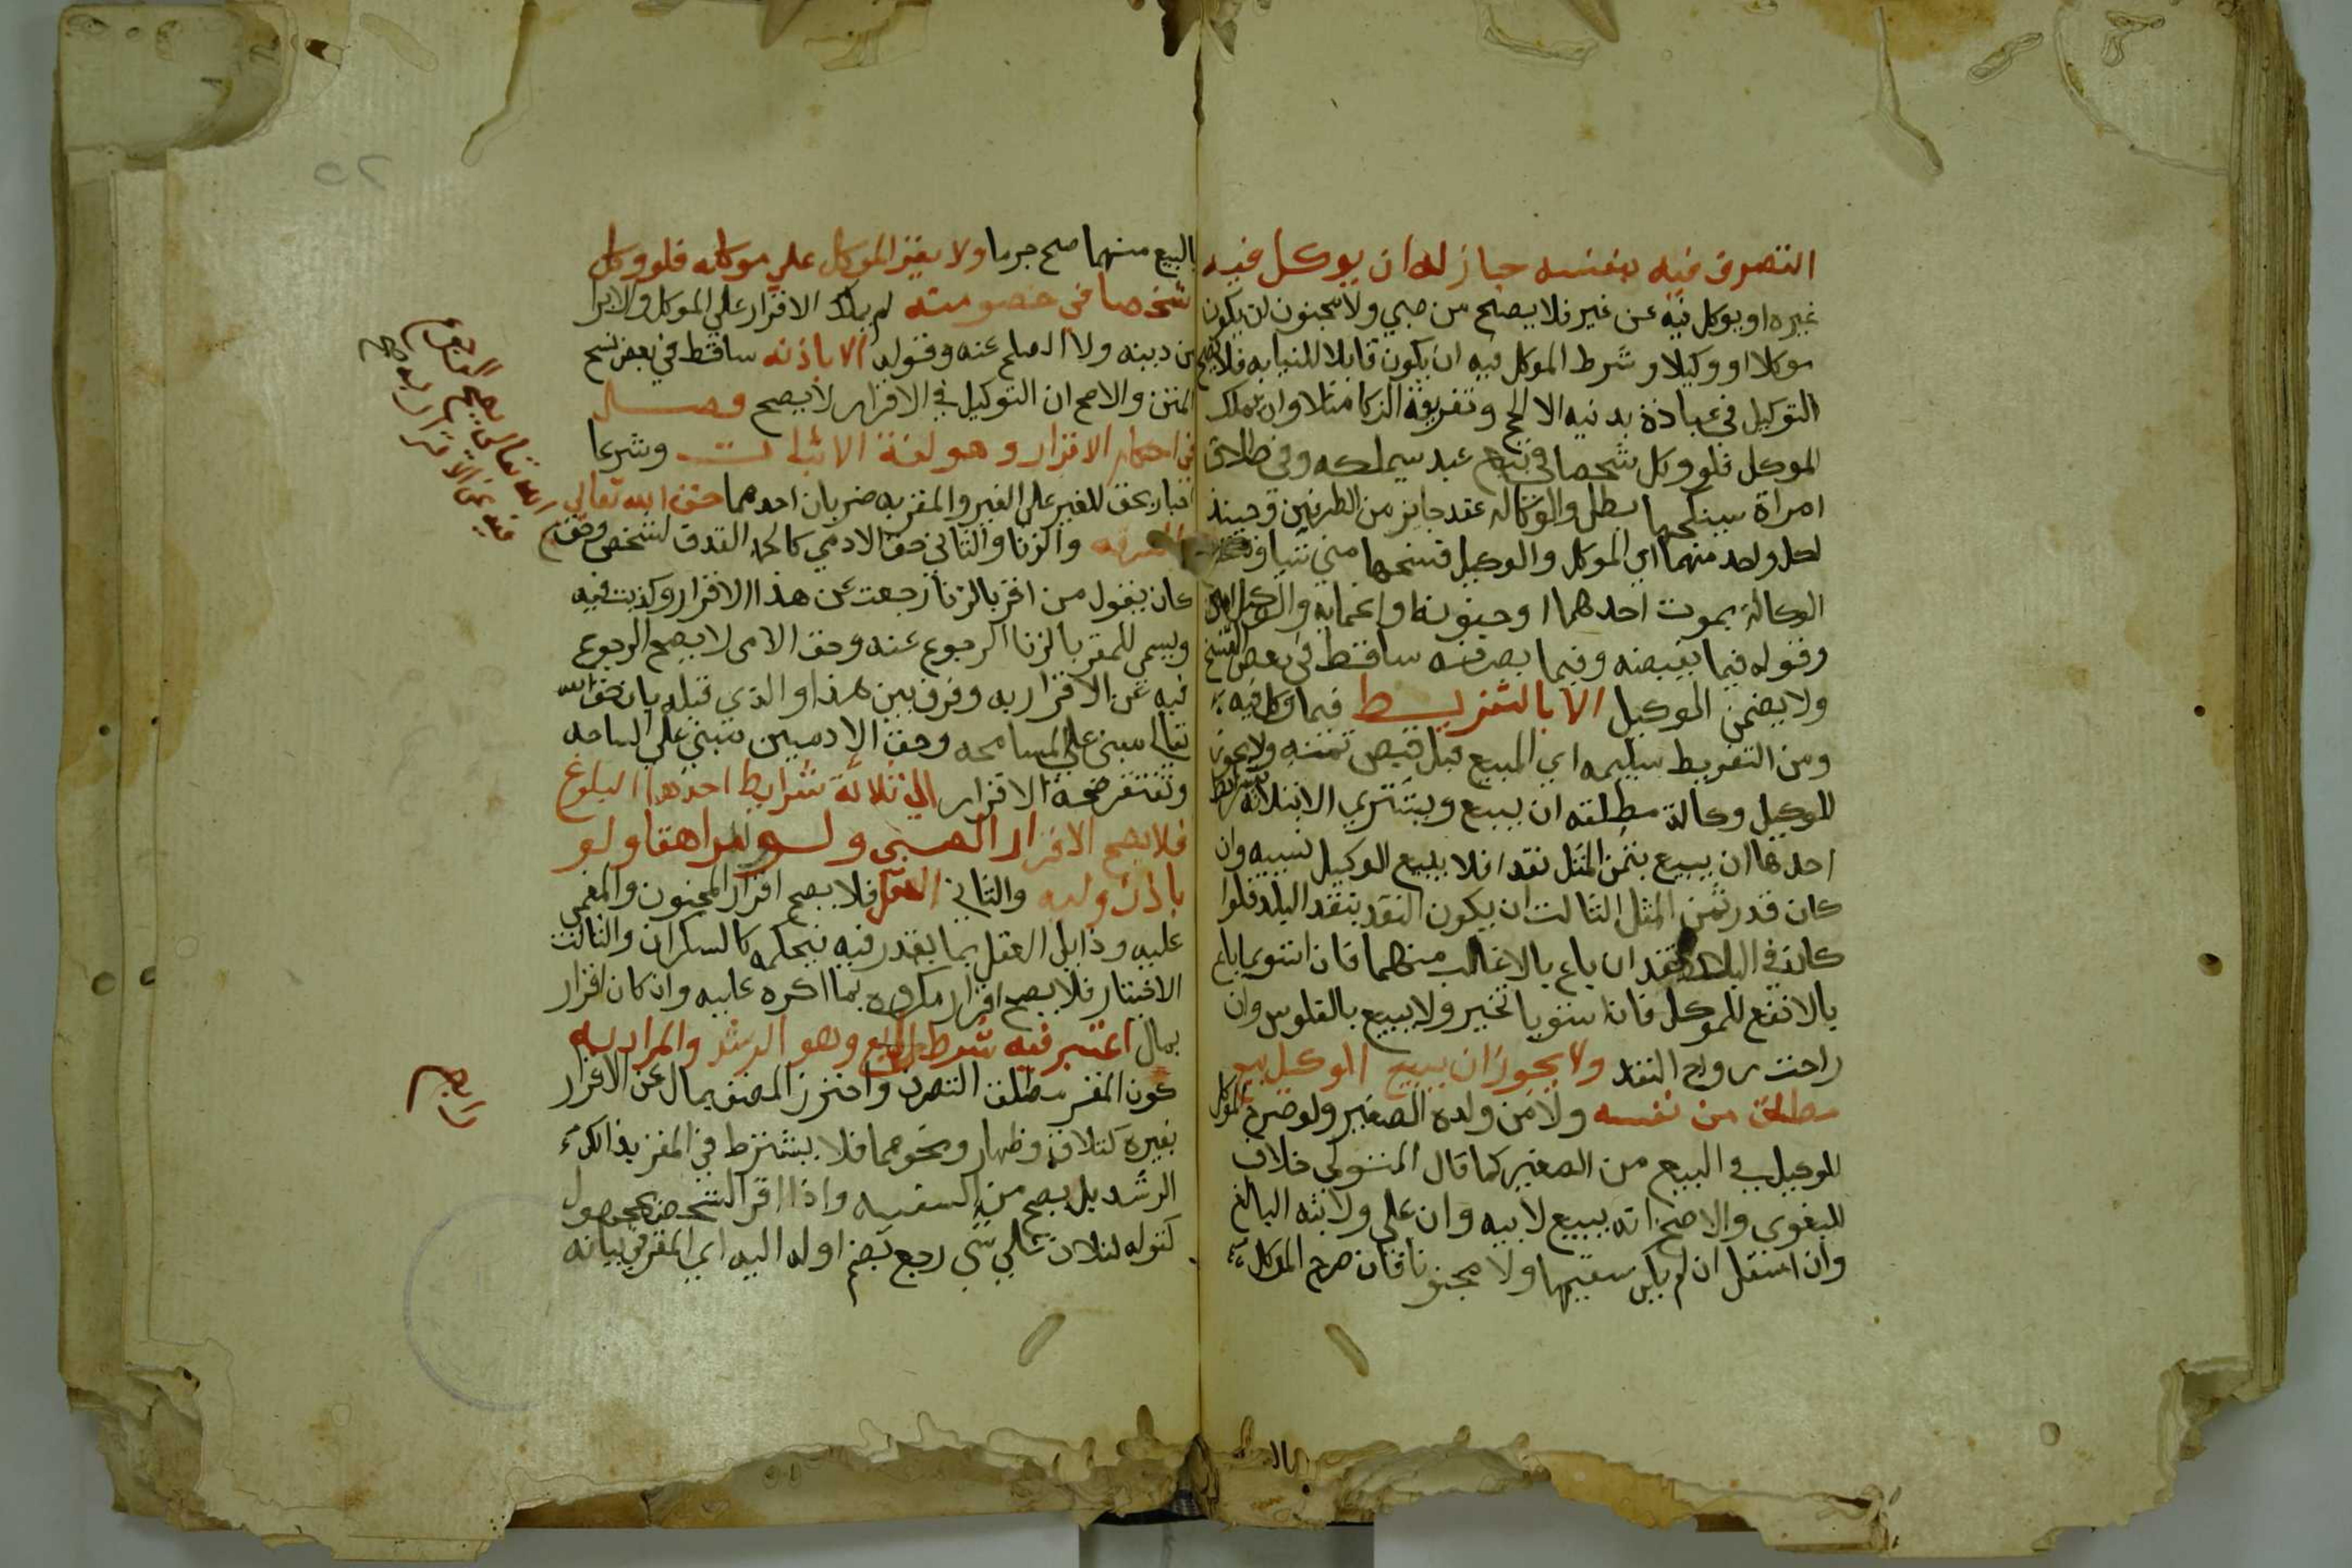 التصرف فيه بنفسه جاز له ان يوكل فيه
غيره او يوكل فيه عن غير فلا يصح من صبي ولا مجنون لن يكون
موكلا او وكيلا و شرط الموكل فيه ان يكون قابلا للنيابه فلا يصح
التوكيل في عبادة بدنيه الا الحج وتفريقة الزكا مثلا وان يملك
الموكل فلو وكل شخصا في بيع عبد سيملكه وفي طلاق
امراة سينكحها بطل والوكالة عقد جايز من الطرفين وحينيذ
لكل واحد منهما اي الموكل والوكيل فسخها متي شيا
الوكالة بموت احدهما او جنونه او اغمايه والوكيل امين
وقوله فيما يقبضه وفيما يصرفه ساقط في بعض النسخ
ولا يضمن الوكيل الا بالتفريط فيما وكل فيه
ومن التفريط تسليمه اي المبيع قبل قبض ثمنه ولا يجوز
للوكيل وكالة مطلقه ان يبيع ويشتري الا بثلاثة شرايط
احدها ان يبيع بثمن المثل نقدا فلا يبيع الوكيل نسيه وان
كان قدر ثمن المثل الثالث ان يكون النقد بنقد البلد فلوا
كان في البلد نقدان باع بالاغالب منهما فان استويا باع
بالانفع للموكل فان استويا تخير ولا يبيع بالفلوس وان
راحت رواج النقد ولا يجوز ان يبيع الوكيل بيع
مطلق من نفسه ولا من ولده الصغير ولو صرح الموكل
للوكيل في البيع من الصغير كما قال المتولي خلاف
للبغوي والاصح انه يبيع لابيه وان علي ولابنه البالغ
وان اسفل ان لم يكن سفيها ولا مجنونا فان صرح الموكل
بالبيع
بالبيع منهما صح جرما ولا يقر الموكل علي موكله فلو وكل
شخصا في خصومته لم يملك الاقرار علي الموكل ولا الابرا
من دينه ولا الصلح عنه وقوله الا باذنه ساقط في بعض نسخ
المتن والاصح ان التوكيل في الاقرار لا يصح فصل
في احكام الاقرار وهو لغة الاثبات وشرعا
اخبار بحق للغير علي الغير والمقر به ضربان احدهما حق الله تعالي
كالسرقه والزنا والثاني حق الادمي كالحد القدف لشخص
كان يقول من اقر بالزنا رجعت عن هذا الاقرار وكذبت فيه
ويسمي للمقر بالزنا الرجوع عنه وحق الامي لا يصح الرجوع
فيه عن الاقرار به وفرق بين هذا والذي قبله بان حق الله
تعالي مبني علي المسامحه وحق الادميين مبني علي الساحه
وتفتقر صحة الاقرار الي ثلاثة شرايط احدها البلوغ
فلا يصح الاقرار الصبي ولو مراهقا ولو
باذن وليه والثاني العقل فلا يصح اقرار المجنون والمغمي
عليه وزايل العقل بما يعذر فيه فحكمه كالسكران والثالث
الاختيار فلا يصح اقرار مكروه بما اكره عليه وان كان اقرار
بمال اعتبر فيه شرط رابع وهو الرشد والمراد به
كون المقر مطلق التصرف واحترز المصنف بمال عن الاقرار
بغيره كتلاق وظهار ونحوهما فلا يشترط في المقر بذالك
الرشد بل يصح من السفيه واذا اقر الشخص بمجهول
كقوله لفلان علي شي رجع بضم اوله اليه اي المقر في بيانه
الله تعالي يصح الرجوع
فيه عن الاقرار به
رابع
٢٥